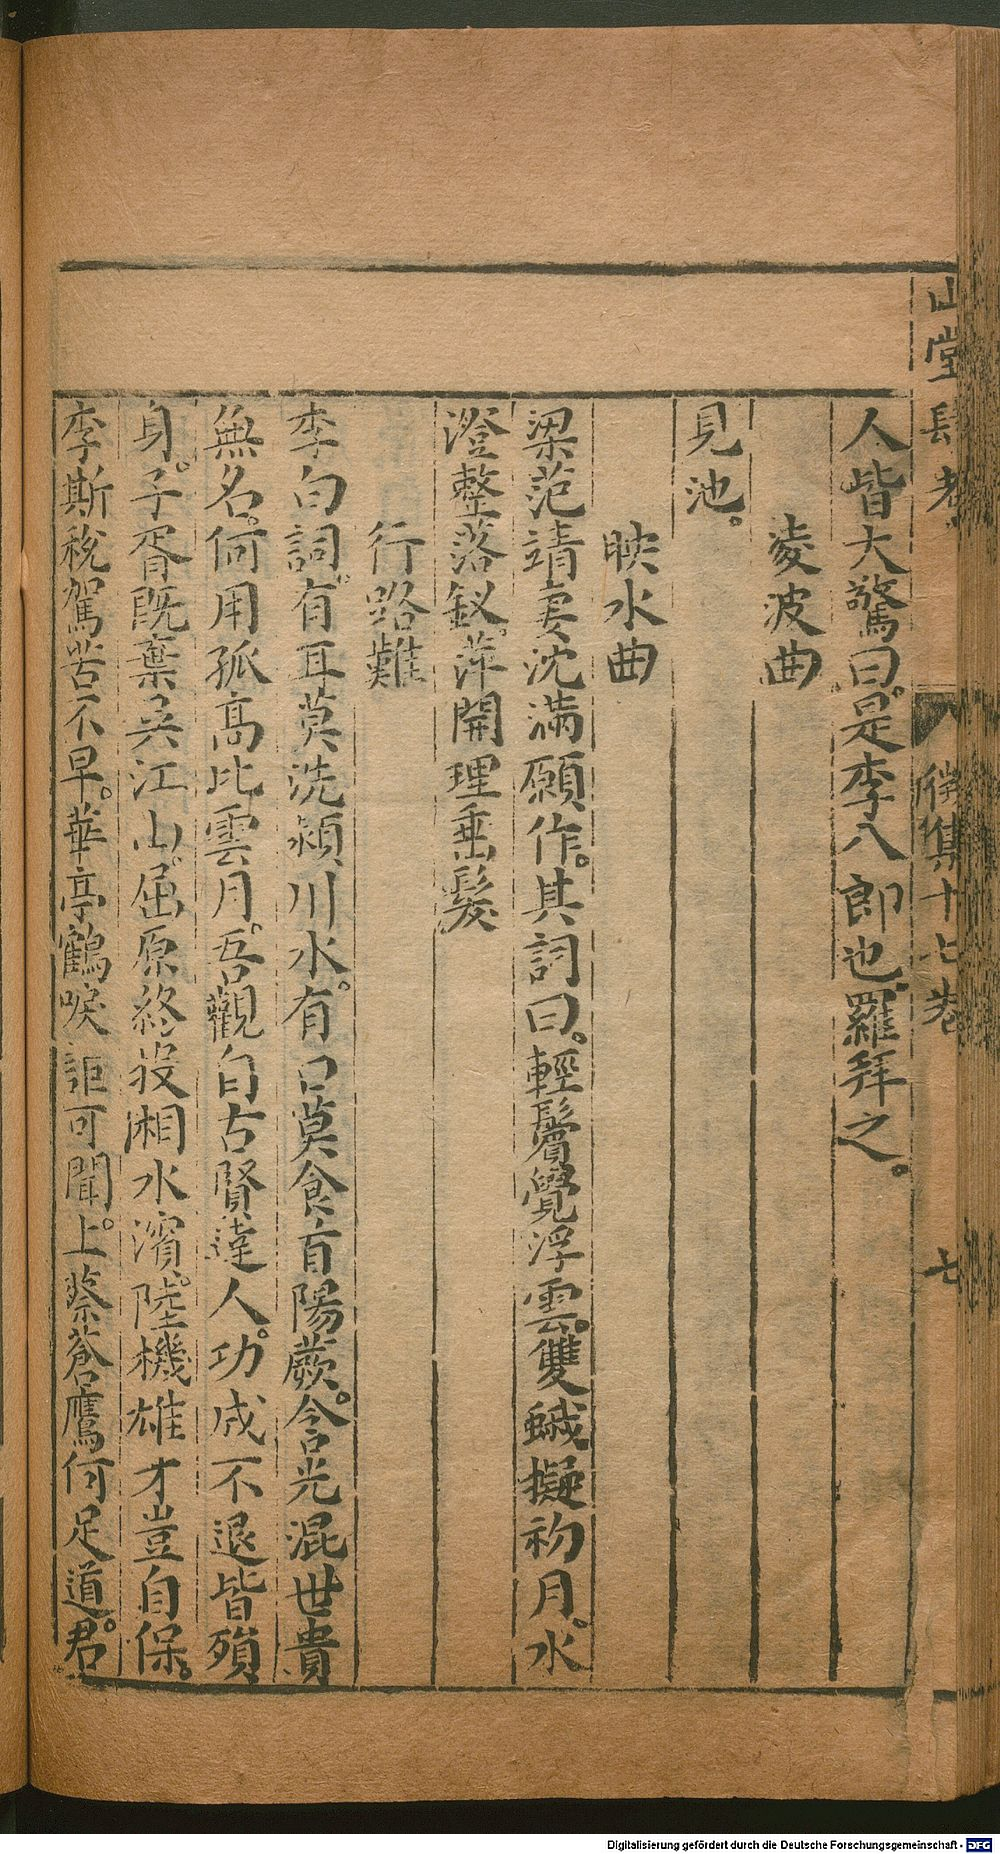 山堂肆考
徵集十七卷
七
人皆大驚曰。是李八郎也。羅拜之。
凌波曲
見池。
映水曲
梁范靖妻沈滿願作。其詞曰。輕鬢覺浮雲。雙蛾擬初月。水
澄整落釵。萍開理垂髮。
行路難
李白詞。有耳莫洗潁川水。有口莫食首陽蕨。含光混世貴
無名。何用孤高比雲月。吾觀自古賢達人。功成不退皆殞
身。子胥既棄吳江山。屈原終投湘水濱。陸機雄才豈自保。
李斯稅駕苦不早。華亭鶴唳詎可聞。上蔡蒼鷹何足道。君
Digitalisierung gefördert durch die Deutsche Forschungsgemeinschaft - DFG